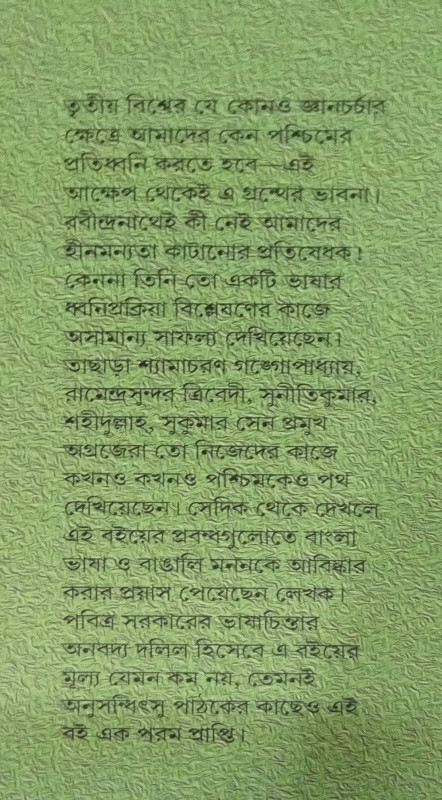 তৃতীয় বিশ্বের যে কোনও জ্ঞানচর্চার
ক্ষেত্রে আমাদের কেন পশ্চিমের
প্রতিধ্বনি করতে হবে—এই
আক্ষেপ থেকেই এ গ্রন্থের ভাবনা।
রবীন্দ্রনাথেই কী নেই আমাদের
হীনমন্যতা কাটানোর প্রতিষেধক!
কেননা তিনি তো একটি ভাষার
ধ্বনিপ্রক্রিয়া বিশ্লেষণের কাজে
অসামান্য সাফল্য দেখিয়েছেন।
তাছাড়া শ্যামাচরণ গঙ্গোপাধ্যায়,
রামেন্দ্রসুন্দর ত্রিবেদী, সুনীতিকুমার,
শহীদুল্লাহ, সুকুমার সেন প্রমুখ
অগ্রজেরা তো নিজেদের কাজে
কখনও কখনও পশ্চিমকেও পথ
দেখিয়েছেন। সেদিক থেকে দেখলে
এই বইয়ের প্রবন্ধগুলোতে বাংলা
ভাষা ও বাঙালি মননকে আবিষ্কার
করার প্রয়াস পেয়েছেন লেখক।
পবিত্র সরকারের ভাষাচিন্তার
অনবদ্য দলিল হিসেবে এ বইয়ের
মূল্য যেমন কম নয়, তেমনই
অনুসন্ধিৎসু পাঠকের কাছেও এই
বই এক পরম প্রাপ্তি।